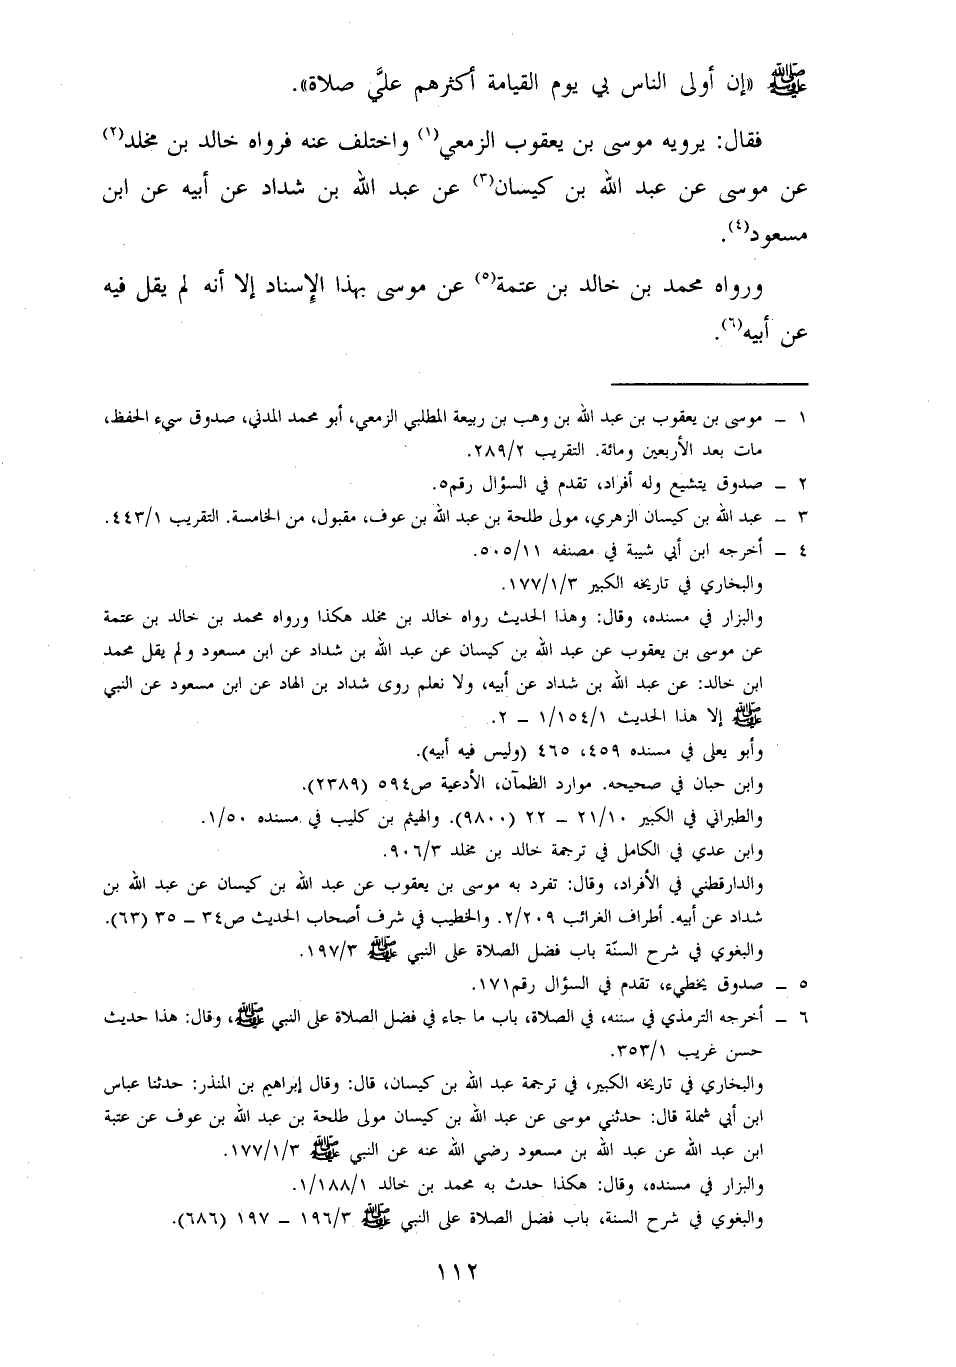 ﷺ «إن أولى الناس بي يوم القيامة أكثرهم عليَّ صلاة».
فقال: يرويه موسى بن يعقوب الزمعي(١) واختلف عنه فرواه خالد بن مخلد(٢)
عن موسى عن عبد الله بن كيسان(٣) عن عبد الله بن شداد عن أبيه عن ابن
مسعود(٤).
ورواه محمد بن خالد بن عتمة(٥) عن موسى بهذا الإسناد إلا أنه لم يقل فيه
عن أبيه(٦).
١ ـ موسى بن يعقوب بن عبد الله بن وهب بن ربيعة المطلبي الزمعي، أبو محمد المدني، صدوق سيء الحفظ،
مات بعد الأربعين ومائة. التقريب ٢٨٩/٢.
٢ ـ صدوق يتشيع وله أفراد، تقدم في السؤال رقم٥.
٣ ـ عبد الله بن كيسان الزهري، مولى طلحة بن عبد الله بن عوف، مقبول، من الخامسة. التقريب ٤٤٣/١.
٤ ـ أخرجه ابن أبي شيبة في مصنفه ٥٠٥/١١.
والبخاري في تاريخه الكبير ١٧٧/١/٣.
والبزار في مسنده، وقال: وهذا الحديث رواه خالد بن مخلد هكذا ورواه محمد بن خالد بن عتمة
عن موسى بن يعقوب عن عبد الله بن كيسان عن عبد الله بن شداد عن ابن مسعود ولم يقل محمد
ابن خالد: عن عبد الله بن شداد عن أبيه، ولا نعلم روى شداد بن الهاد عن ابن مسعود عن النبي
ﷺ إلا هذا الحديث ١/١٥٤/١ ـ ٢.
وأبو يعلى في مسنده ٤٥٩، ٤٦٥ (وليس فيه أبيه).
وابن حبان في صحيحه. موارد الظمآن، الأدعية ص٥٩٤ (٢٣٨٩).
والطبراني في الكبير ٢١/١٠ ـ ٢٢ (٩٨٠٠). والهيثم بن كليب في مسنده ١/٥٠.
وابن عدي في الكامل في ترجمة خالد بن مخلد ٩٠٦/٣.
والدارقطني في الأفراد، وقال: تفرد به موسى بن يعقوب عن عبد الله بن كيسان عن عبد الله بن
شداد عن أبيه. أطراف الغرائب ٢/٢٠٩. والخطيب في شرف أصحاب الحديث ص٣٤ ـ ٣٥ (٦٣).
والبغوي في شرح السنّة باب فضل الصلاة على النبي ﷺ ١٩٧/٣.
٥ ـ صدوق يخطيء، تقدم في السؤال رقم١٧١.
٦ ـ أخرجه الترمذي في سننه، في الصلاة، باب ما جاء في فضل الصلاة على النبي ﷺ، وقال: هذا حديث
حسن غريب ٣٥٣/١.
والبخاري في تاريخه الكبير، في ترجمة عبد الله بن كيسان، قال: وقال إبراهيم بن المنذر: حدثنا عباس
ابن أبي شملة قال: حدثني موسى عن عبد الله بن كيسان مولى طلحة بن عبد الله بن عوف عن عتبة
ابن عبد الله عن عبد الله بن مسعود رضي الله عنه عن النبي ﷺ ١٧٧/١/٣.
والبزار في مسنده، وقال: هكذا حدث به محمد بن خالد ١/١٨٨/١.
والبغوي في شرح السنة، باب فضل الصلاة على النبي ﷺ ١٩٦/٣ ـ ١٩٧ (٦٨٦).
١١٢